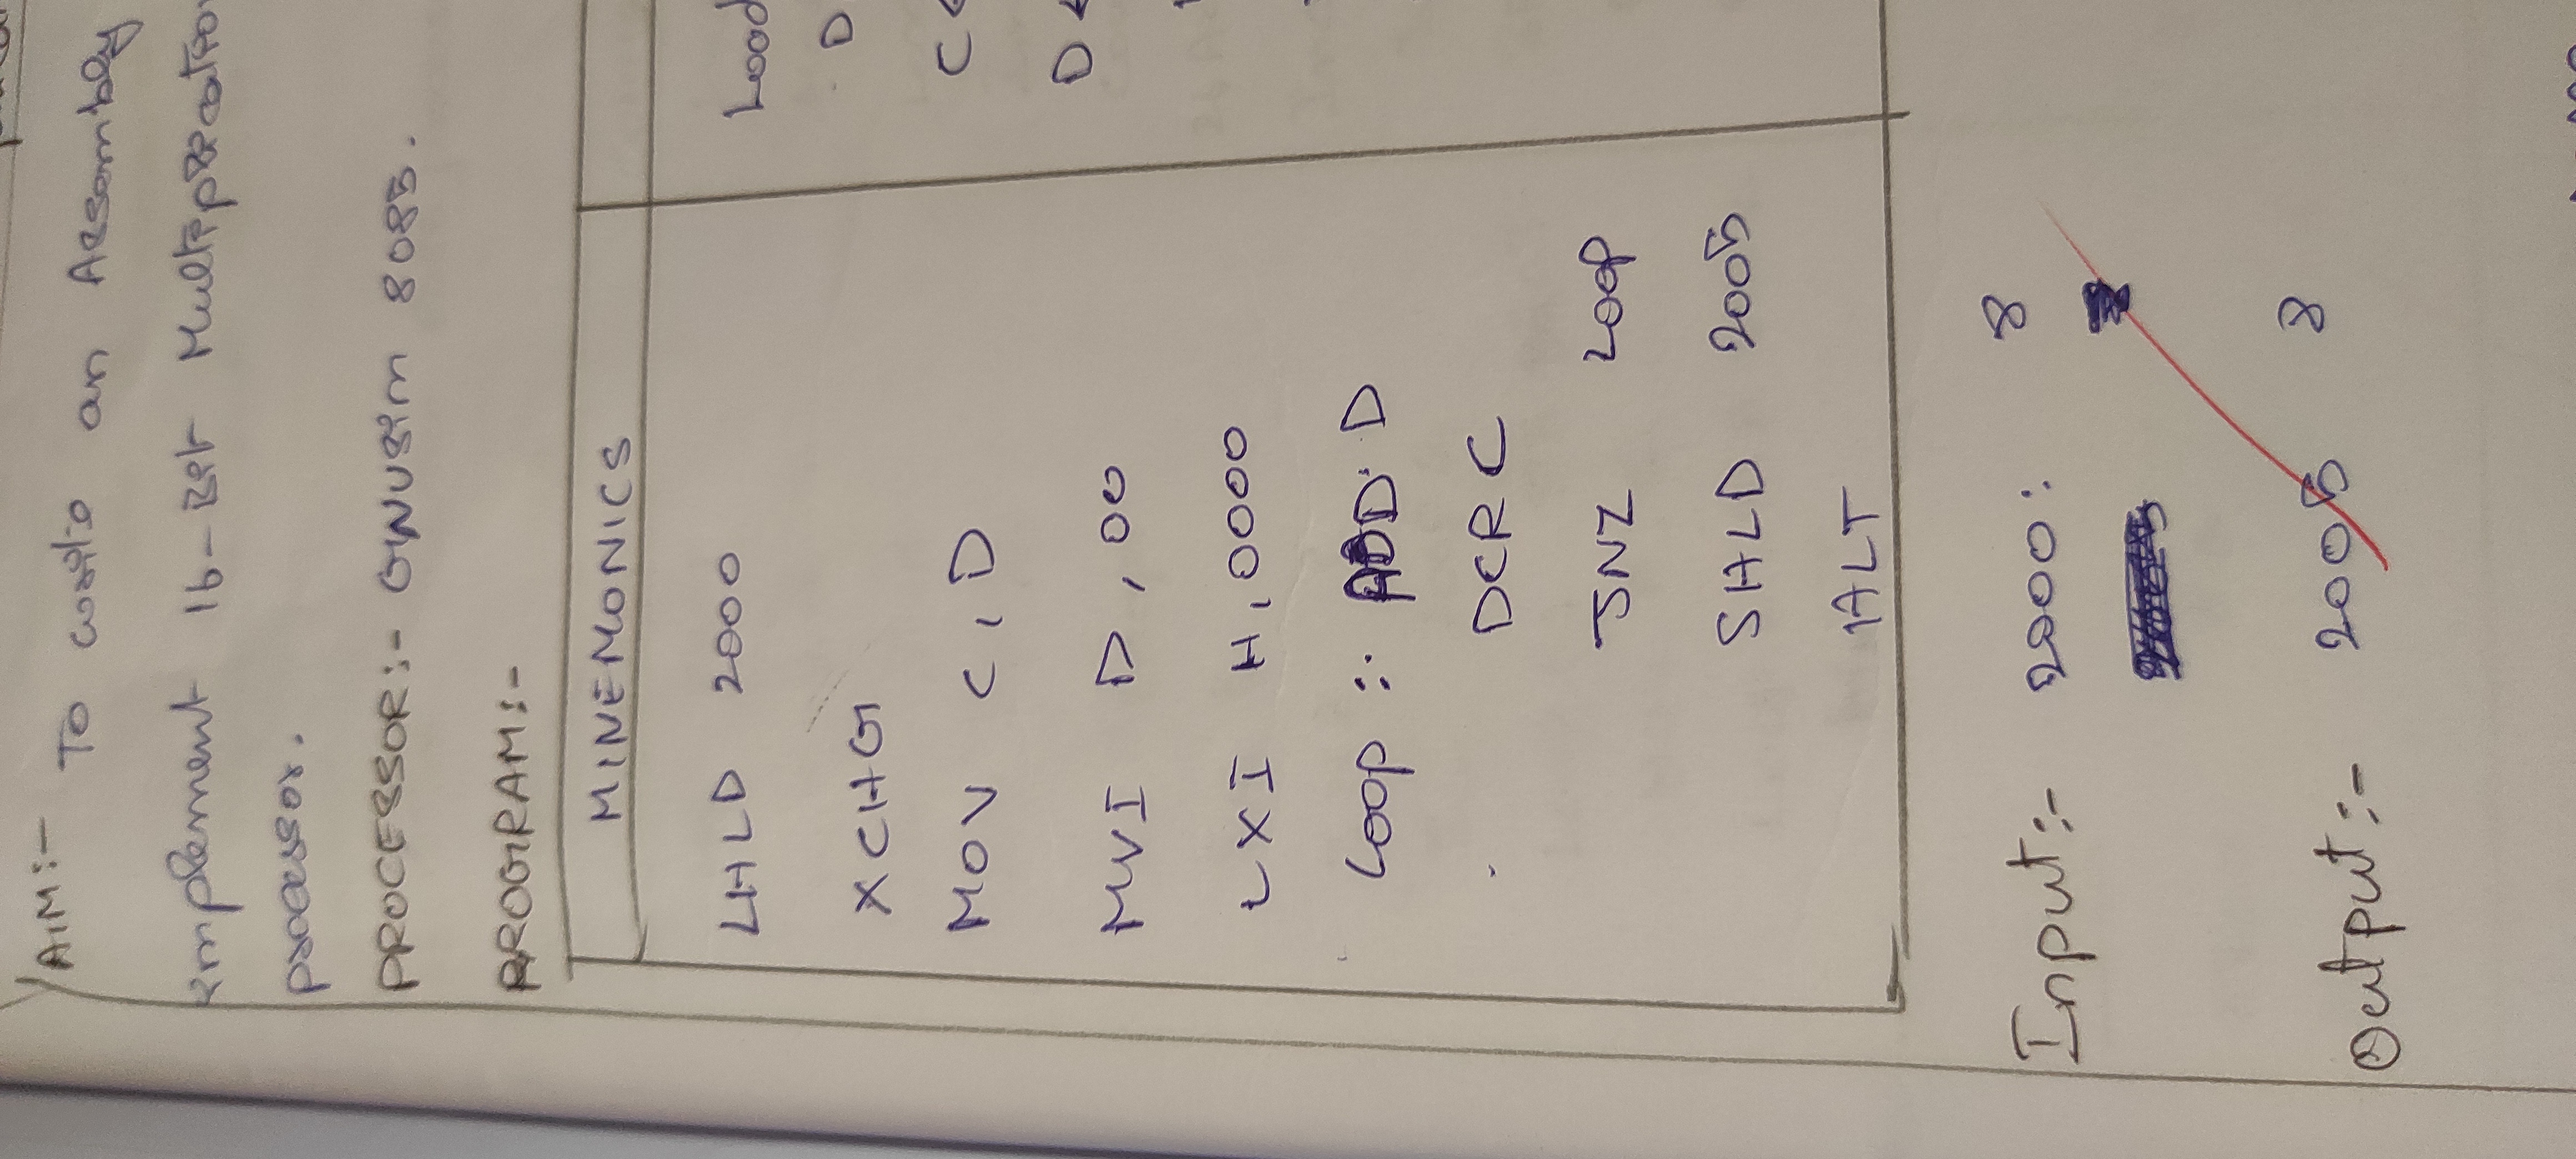 AIM:- To write an Assembly
implement 16-Bit Multiplication
processor.
PROCESSOR:- GNUsim 8085.
PROGRAM:-
MINEMONICS
LHLD 2000 Load
XCHG D
MOV C, D C<
MVI D, 00 D<
LXI H, 0000
Loop :- D
DCR C
JNZ LOOP
SHLD 2005
HLT
Input:- 2000: 8
Output:- 2005 8